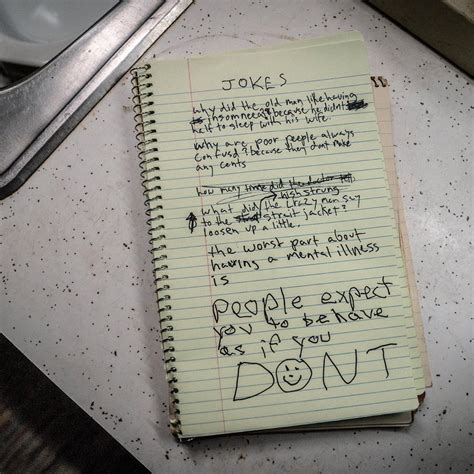 JOKES
why did the old man like having
insomneea? because he didnt
haft to sleep with his wife.
why are poor people always
confusd? because they dont make
any cents
how many
high strung
what did the crazy man say
to the strait jacket?
loosen up a little.
the worst part about
having a mental illness
is
people expect
you to behave
as if you
DONT